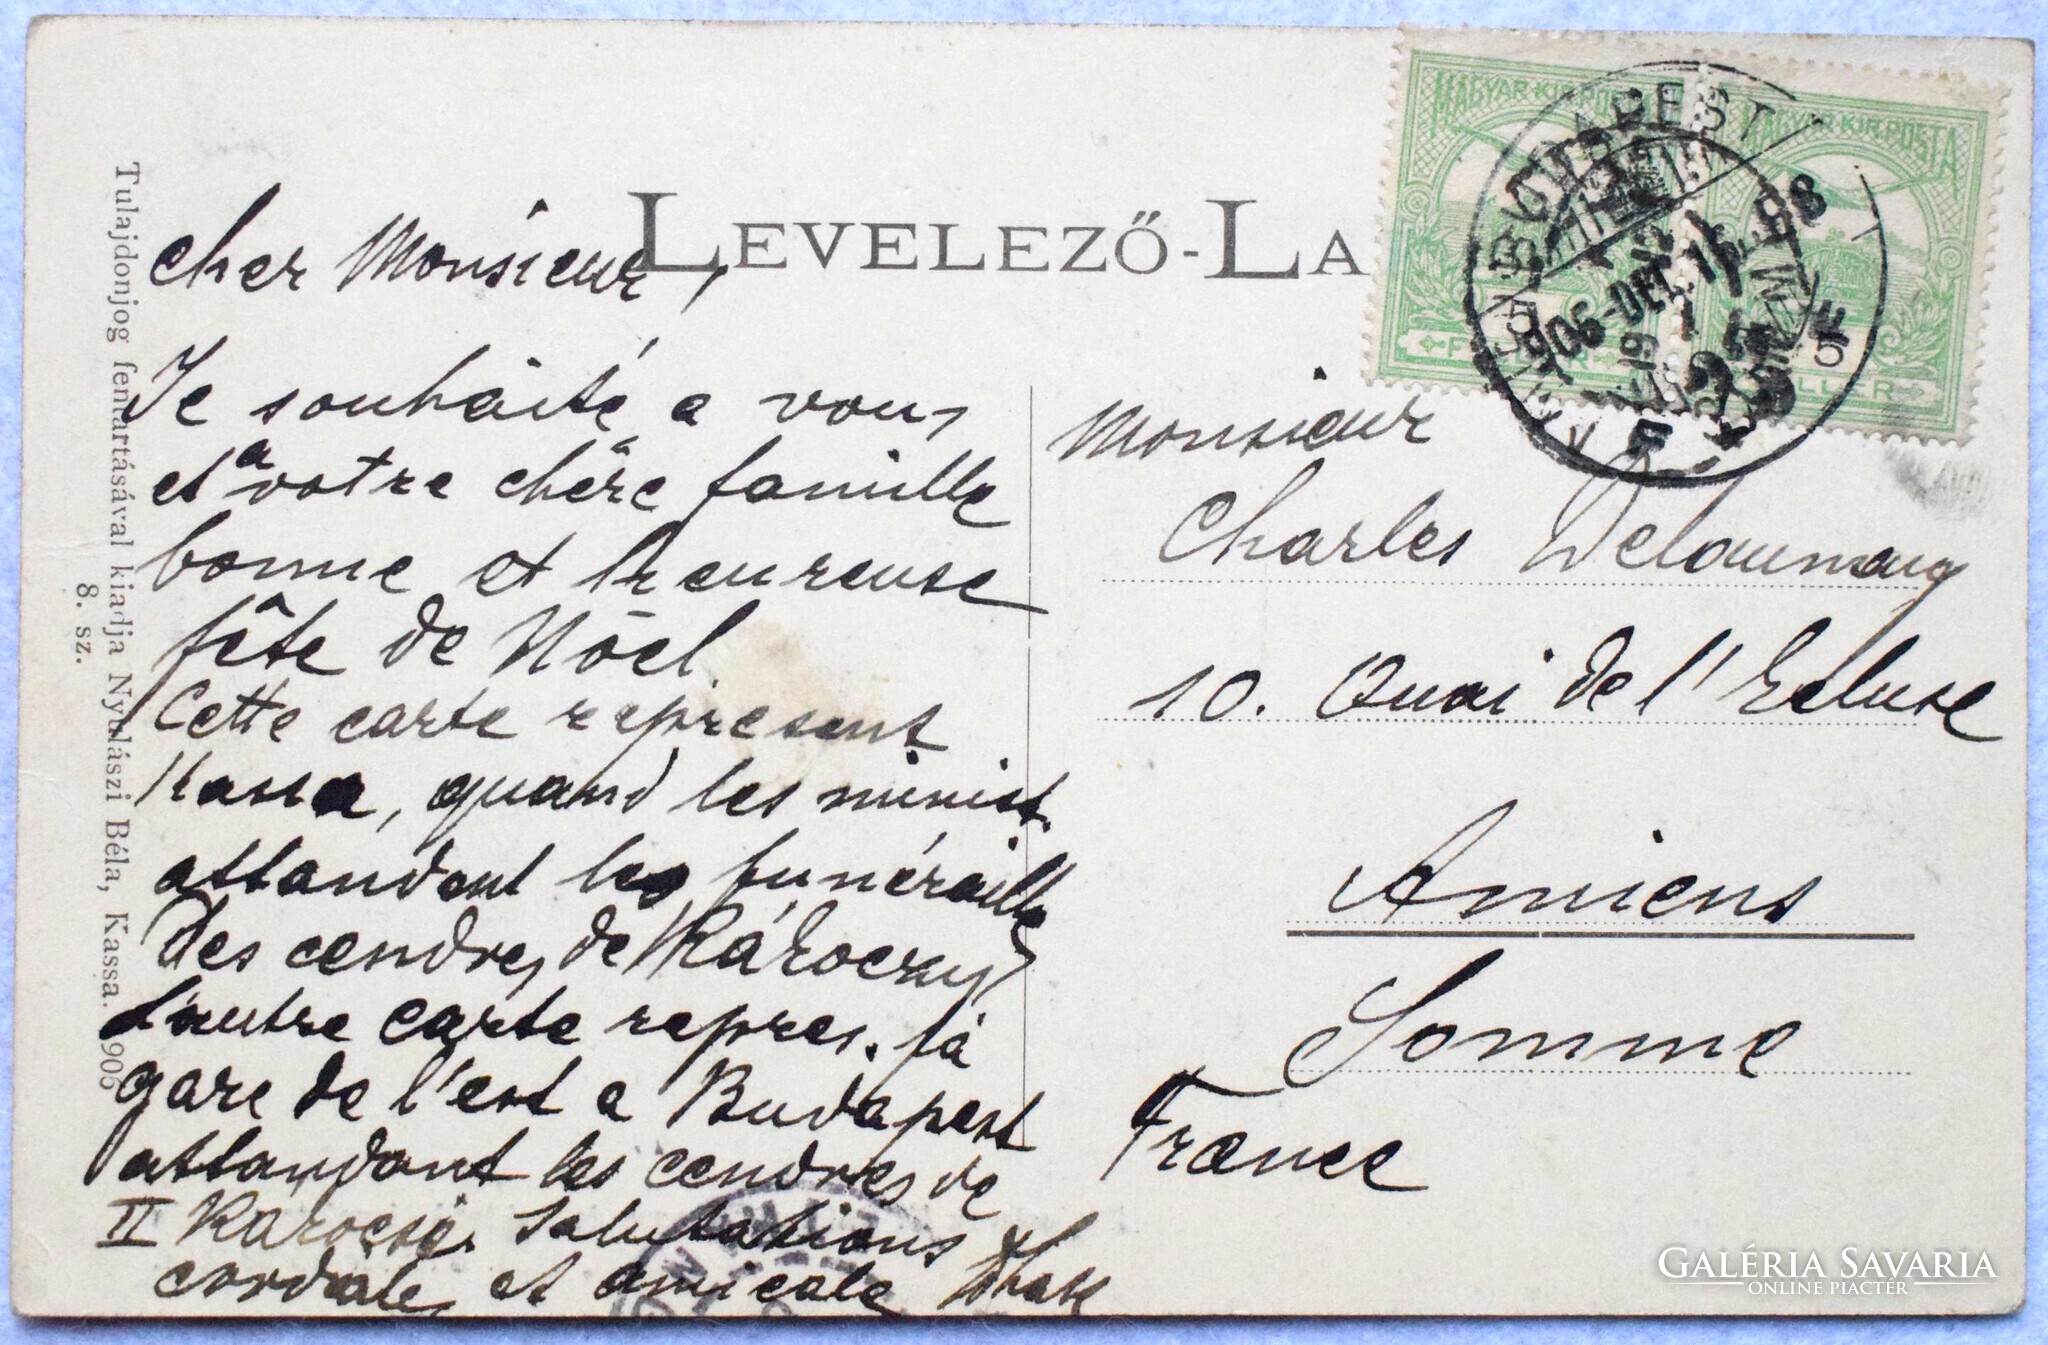 LEVELEZŐ-LA
MAGYAR KIR. POSTA
MAGYAR KIR. POSTA
BUDAPEST
906-DEC. 1
Tulajdonjog fentartásával kiadja Nyulászi Béla, Kassa. 1906
8. sz.
cher Monsieur,
Je souháité a vous
et a votre chère famille
bonne et heureuse
fête de Nöel
Cette carte represent
Kassa, quand les minist.
attandant les funéraille
des cendres de Rákoczy
L'autre carte repres. la
gare de l'est a Budapest
attandant les cendres de
II Rákoczi. Salutations
cordiales et amicale
Monsieur
Charles Delaunay
10. Quai de l'Ecluse
Amiens
Somme
France
GALÉRIA SAVARIA
ONLINE PIACTÉR